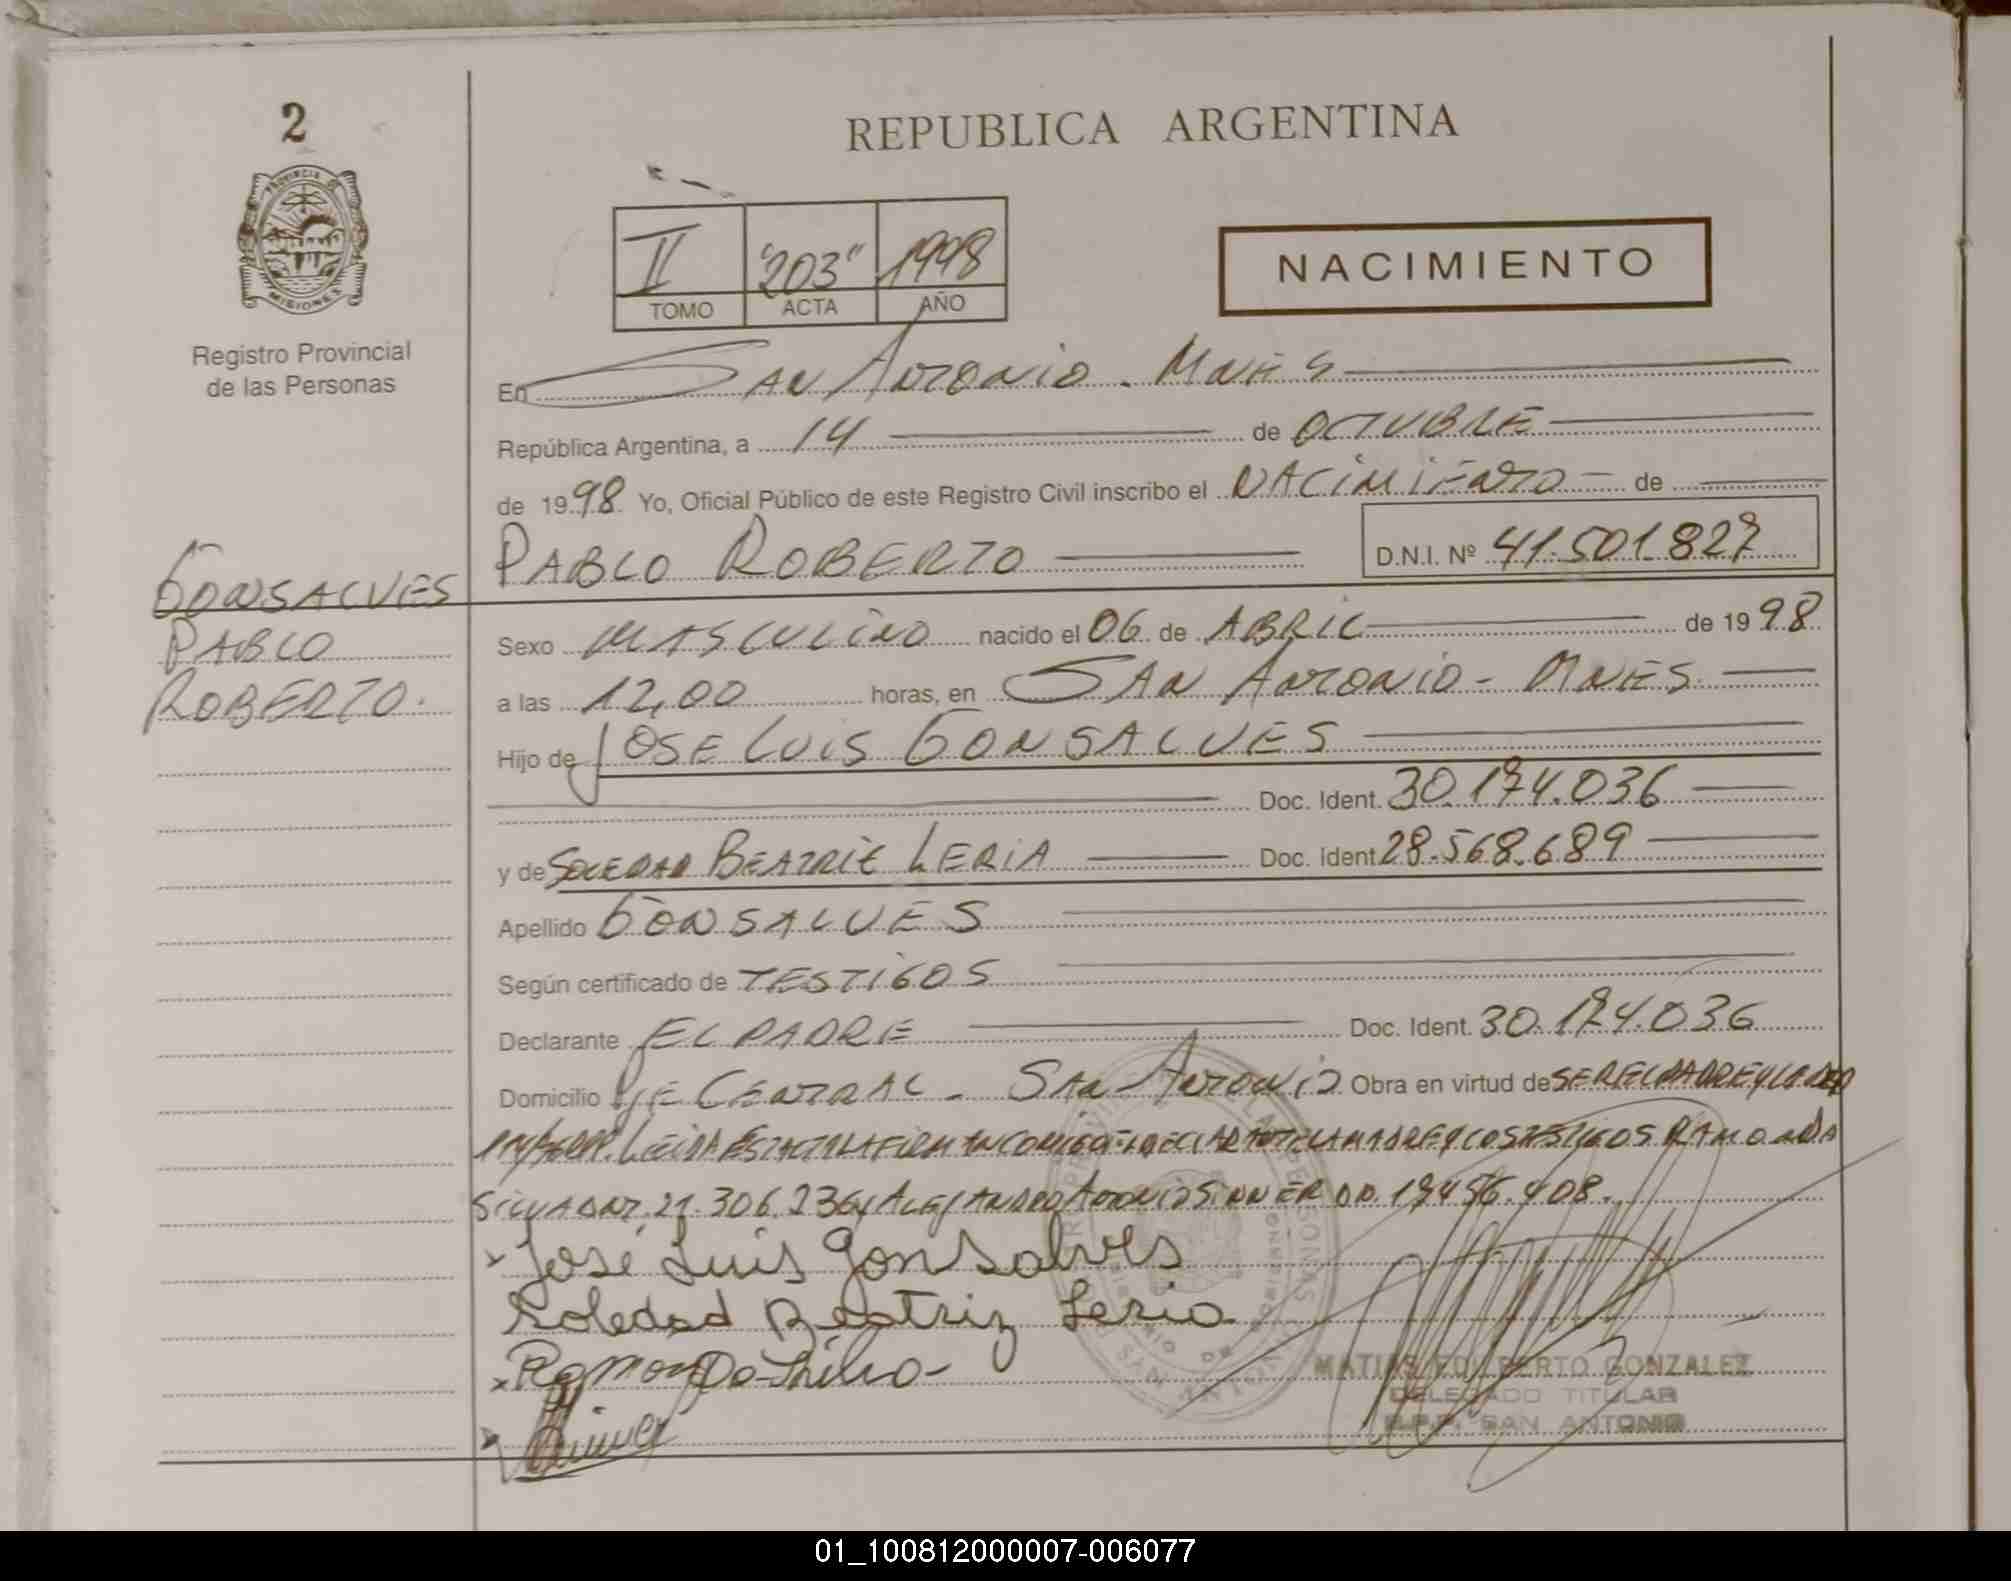 2
REPUBLICA ARGENTINA
PROVINCIA DE
MISIONES
II "203" 1998
TOMO ACTA AÑO
NACIMIENTO
Registro Provincial
de las Personas
En San Antonio - Mnes
República Argentina, a 14 de OCTUBRE
de 1998 Yo, Oficial Público de este Registro Civil inscribo el NACIMIENTO de
PABLO ROBERTO D.N.I. Nº 41.501.827
GONSALVES
PABLO
ROBERTO.
Sexo MASCULINO nacido el 06 de ABRIL de 1998
a las 12,00 horas, en SAN ANTONIO - MNES.
Hijo de JOSE LUIS GONSALVES
Doc. Ident. 30.174.036
y de SOLEDAD BEATRIZ LERIA Doc. Ident 28.568.689
Apellido GONSALVES
Según certificado de TESTIGOS
Declarante EL PADRE Doc. Ident. 30.174.036
Domicilio CENTRAL - SAN ANTONIO Obra en virtud de SER EL PADRE Y
LEIDA EL ACTA LA FIRMAN CONMIGO EL DECLARANTE LA MADRE Y LOS TESTIGOS RAMONDA
SILVA DNI. 21.306.236 Y ALEJANDRO ANTONIO SINNER 17.456.408.
José Luis Gonsalves
Soledad Beatriz Leria
Ramonda Silva
MATIAS EDILBERTO GONZALEZ
DELEGADO TITULAR
R.P.P. SAN ANTONIO
01_100812000007-006077